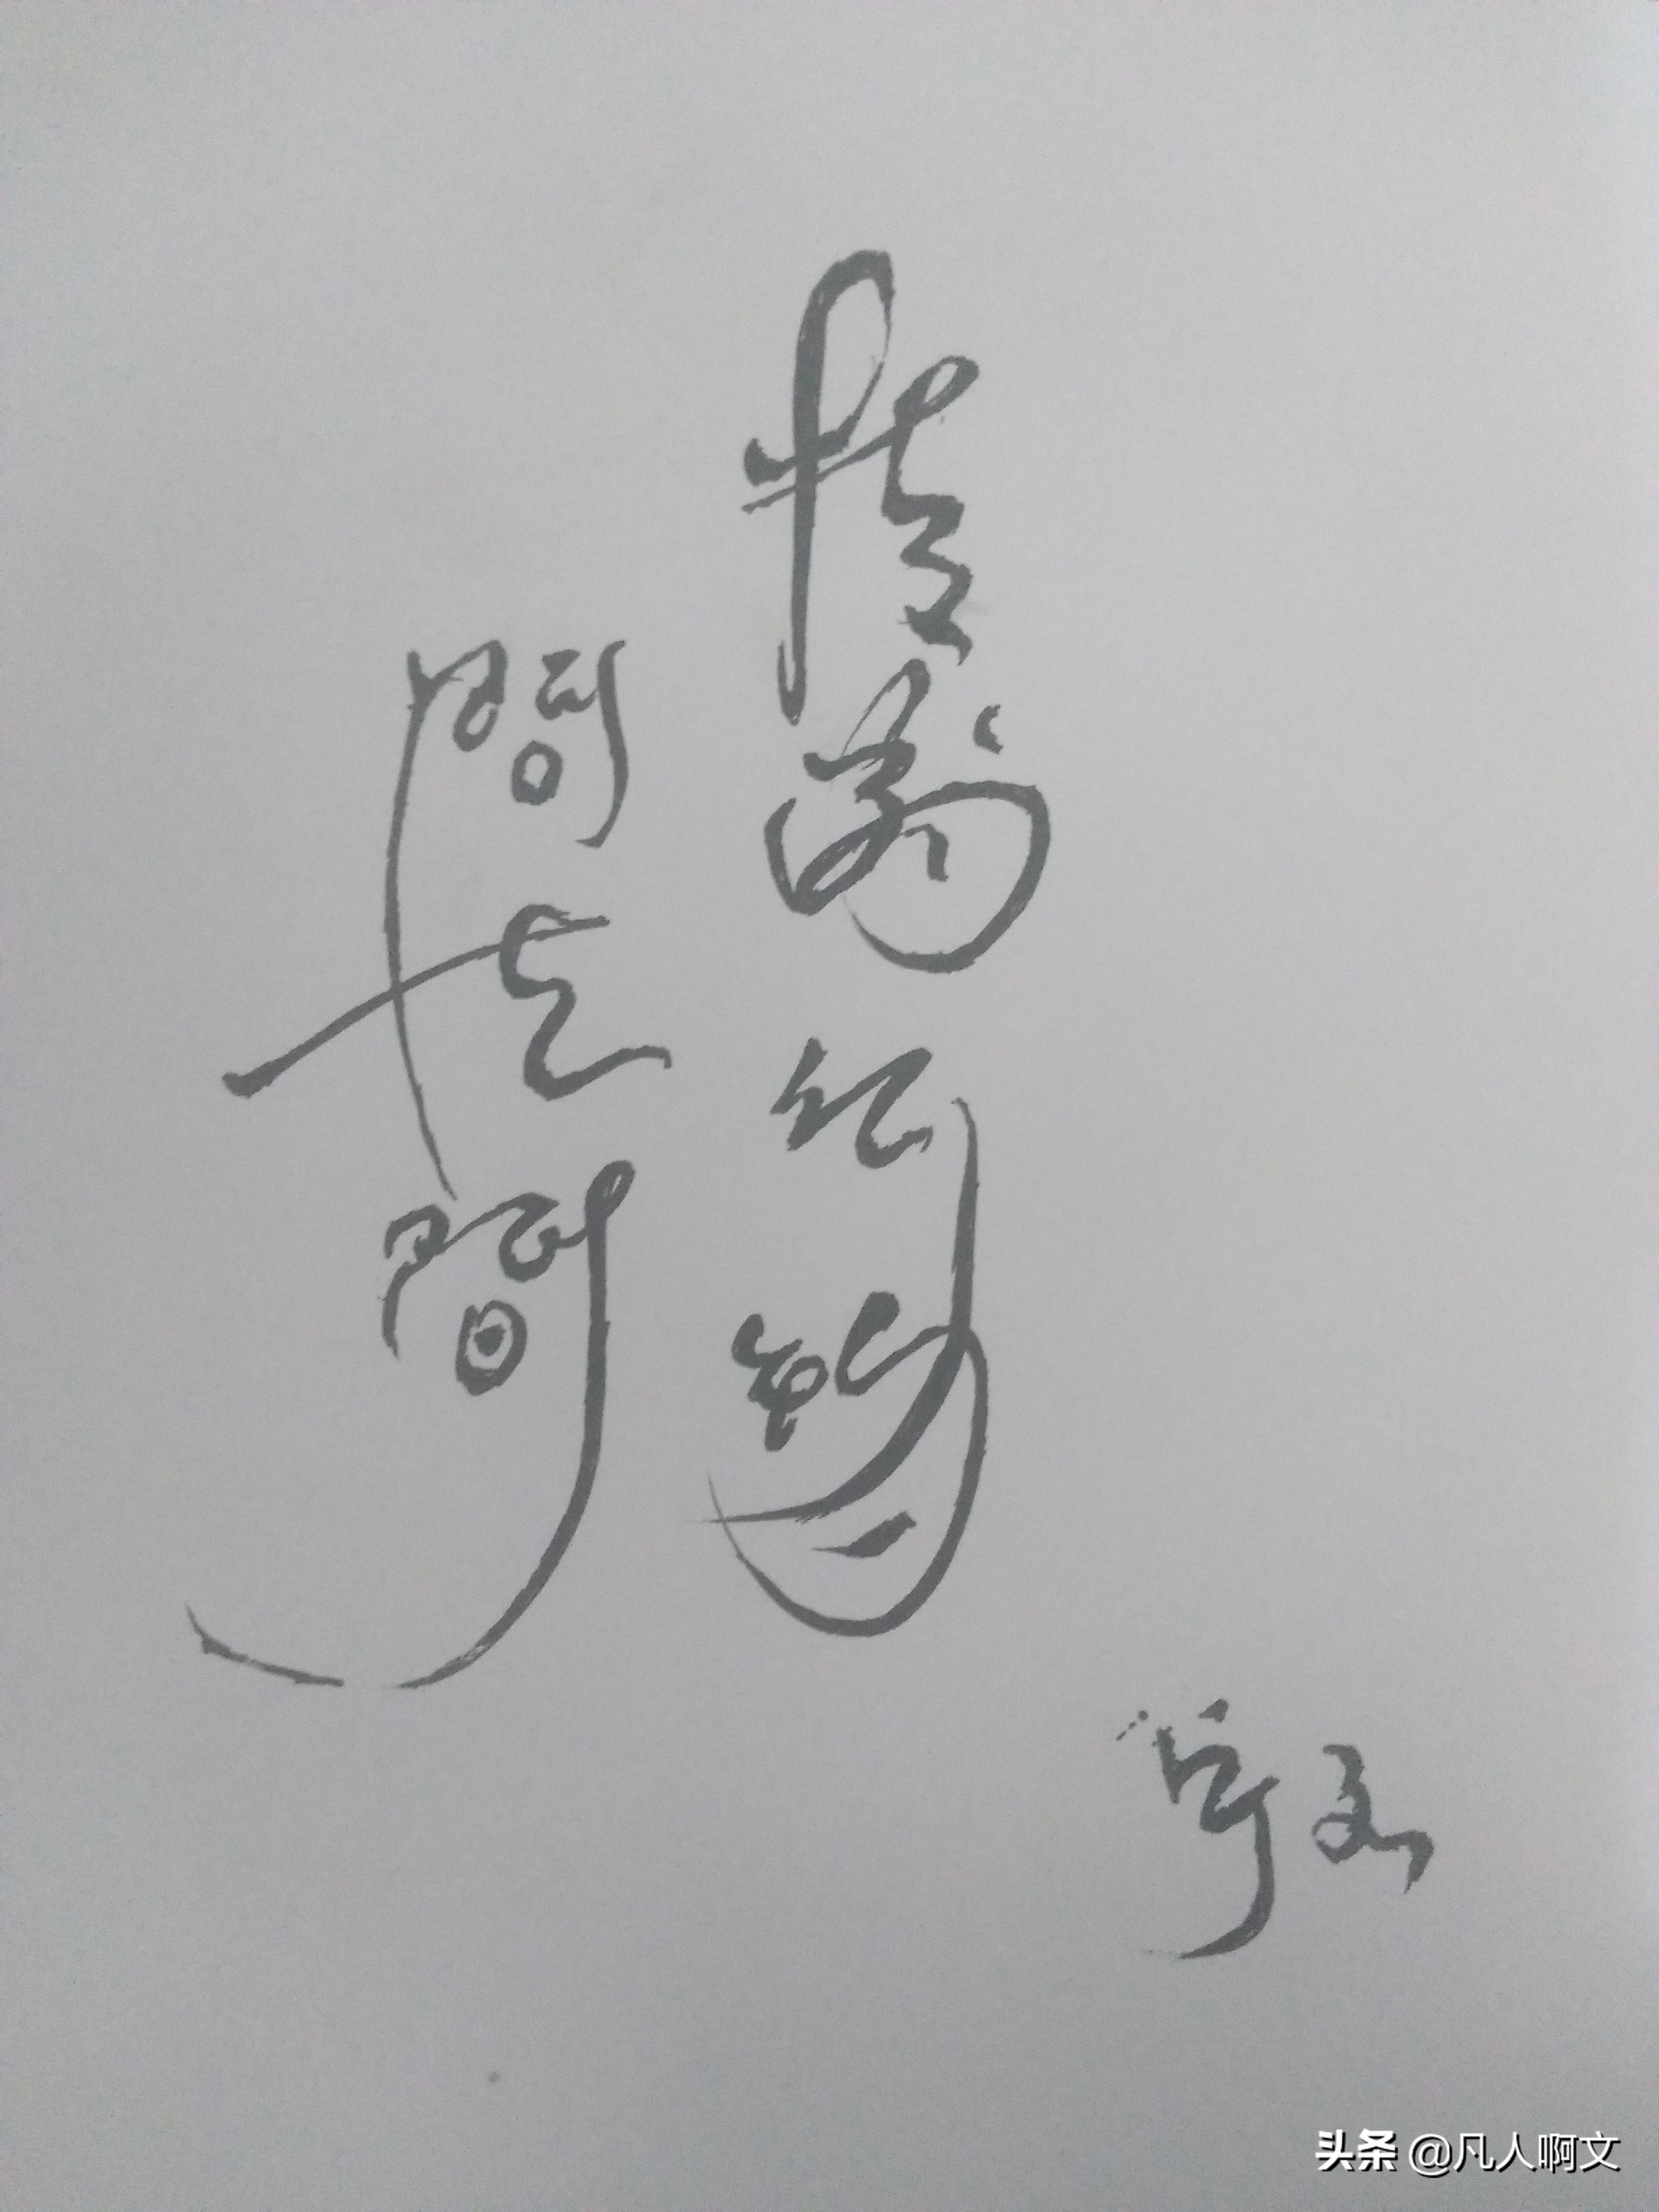 問世間
情為何物
宇文
头条 @凡人啊文